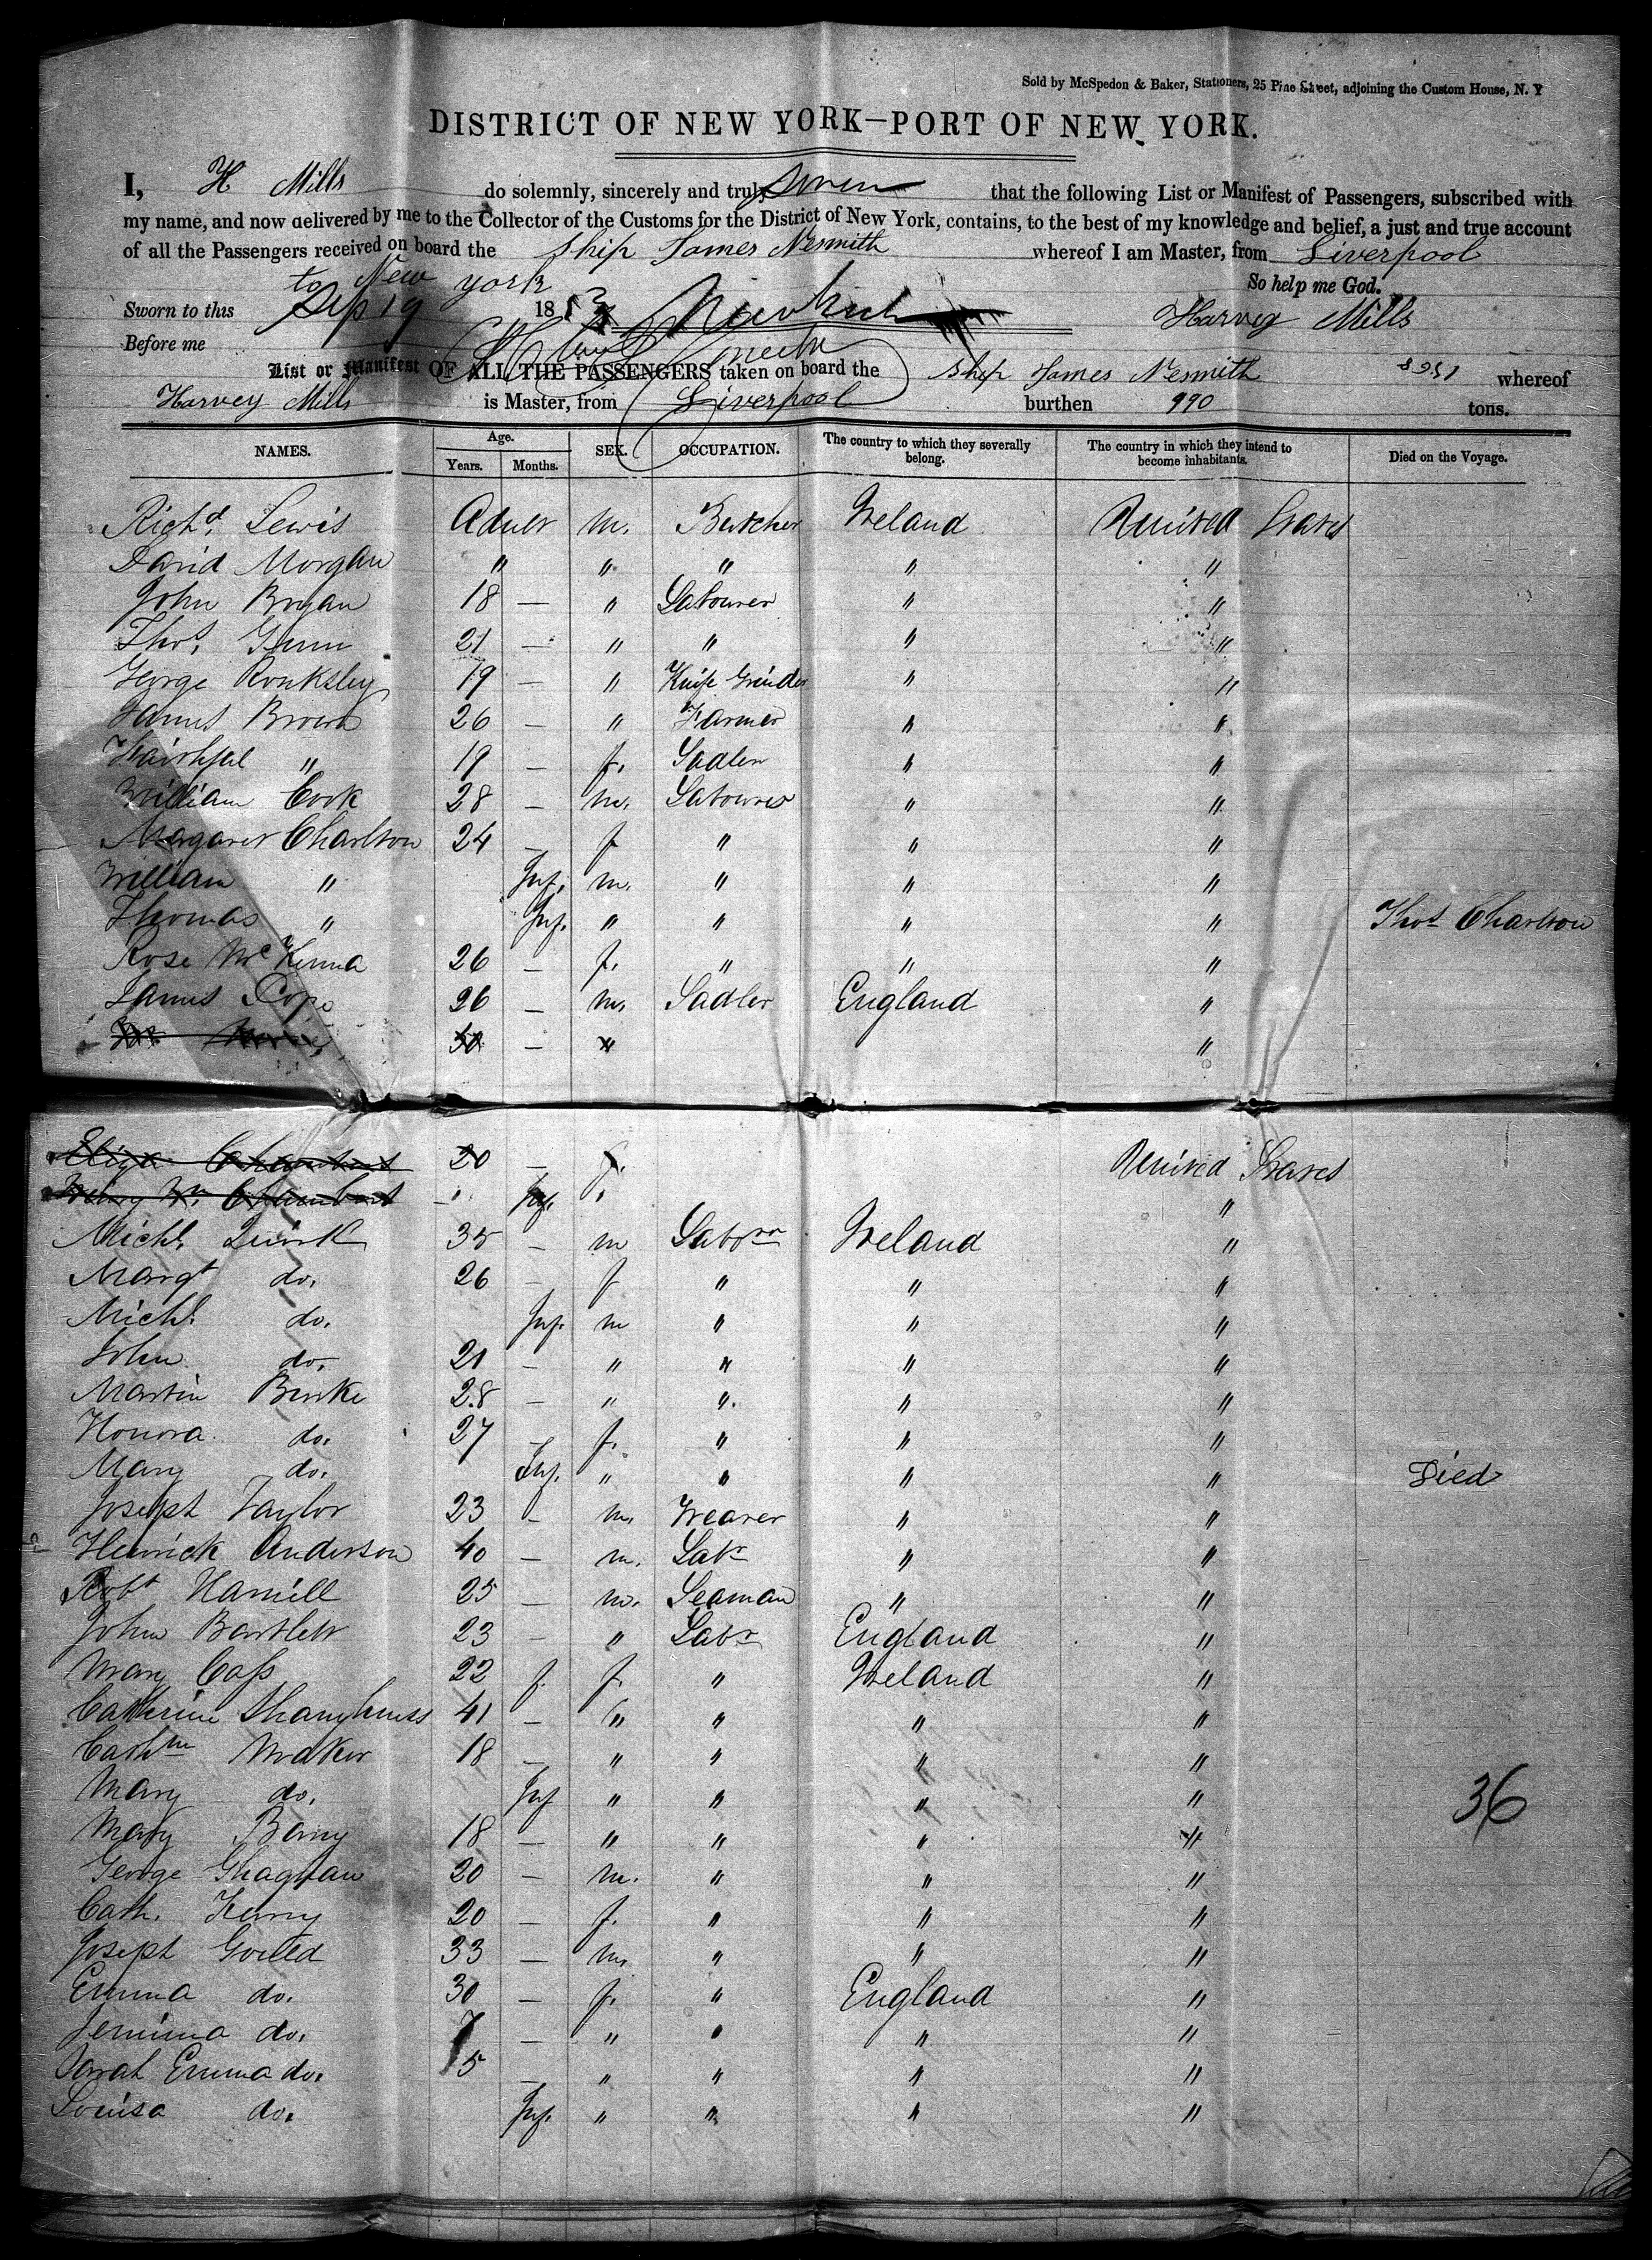 Sold by McSpedon & Baker, Stationers, 25 Pine Street, adjoining the Custom House, N. Y
DISTRICT OF NEW YORK—PORT OF NEW YORK.
I, H Mills do solemnly, sincerely and truly swear that the following List or Manifest of Passengers, subscribed with
my name, and now delivered by me to the Collector of the Customs for the District of New York, contains, to the best of my knowledge and belief, a just and true account
of all the Passengers received on board the Ship James Nesmith whereof I am Master, from Liverpool
to New york So help me God.
Sworn to this Sep 19 1853 Harvey Mills
Before me
List or Manifest OF ALL THE PASSENGERS taken on board the Ship James Nesmith whereof
Harvey Mills is Master, from Liverpool burthen 990 tons.
NAMES. Age. SEX. OCCUPATION. The country to which they severally belong. The country in which they intend to become inhabitants. Died on the Voyage.
Years. Months.
Richd. Lewis Adult m. Butcher Ireland United States
David Morgan " " " " "
John Bryan 18 — " Labourer " "
Thos. Gunn 21 — " " " "
George Ronksley 19 — " Knife Grinder " "
James Brown 26 — " Farmer " "
Faithful " 19 — f. Sadler " "
William Cook 28 — m. Labourer " "
Margaret Charlton 24 — f " " "
William " Inf. m. " " "
Thomas " Inf. " " " " Thos Charlton
Rose McKenna 26 — f. " " "
James Pope 26 — m. Sadler England "
30 — "
Eliza 20 — f. United States
Inf. "
Michl. Quirk 35 — m Labour Ireland "
Margt do. 26 — f " " "
Michl. do. Inf. m " " "
John do. 21 — " " " "
Martin Burke 28 — " " " "
Honora do. 27 — f. " " "
Mary do. Inf. " " " " Died
Joseph Taylor 23 — m. Weaver " "
Henrick Anderson 40 — m. Labr " "
Robt Hamill 25 — m. Seaman " "
John Bartlett 23 — " Labr England "
Mary Cass 22 f. f. " Ireland "
Catherine Shaughness 41 — " " " "
Cathne Maker 18 — " " " "
Mary do. Inf " " " " 36
Mary Barry 18 — " " " "
George 20 — m. " " "
Cath. Kenny 20 — f. " " "
Joseph Gould 33 — m. " " "
Emma do. 30 — f. " England "
Jemima do. 7 — " " " "
Sarah Emma do. 5 — " " " "
Louisa do. Inf. " " " "